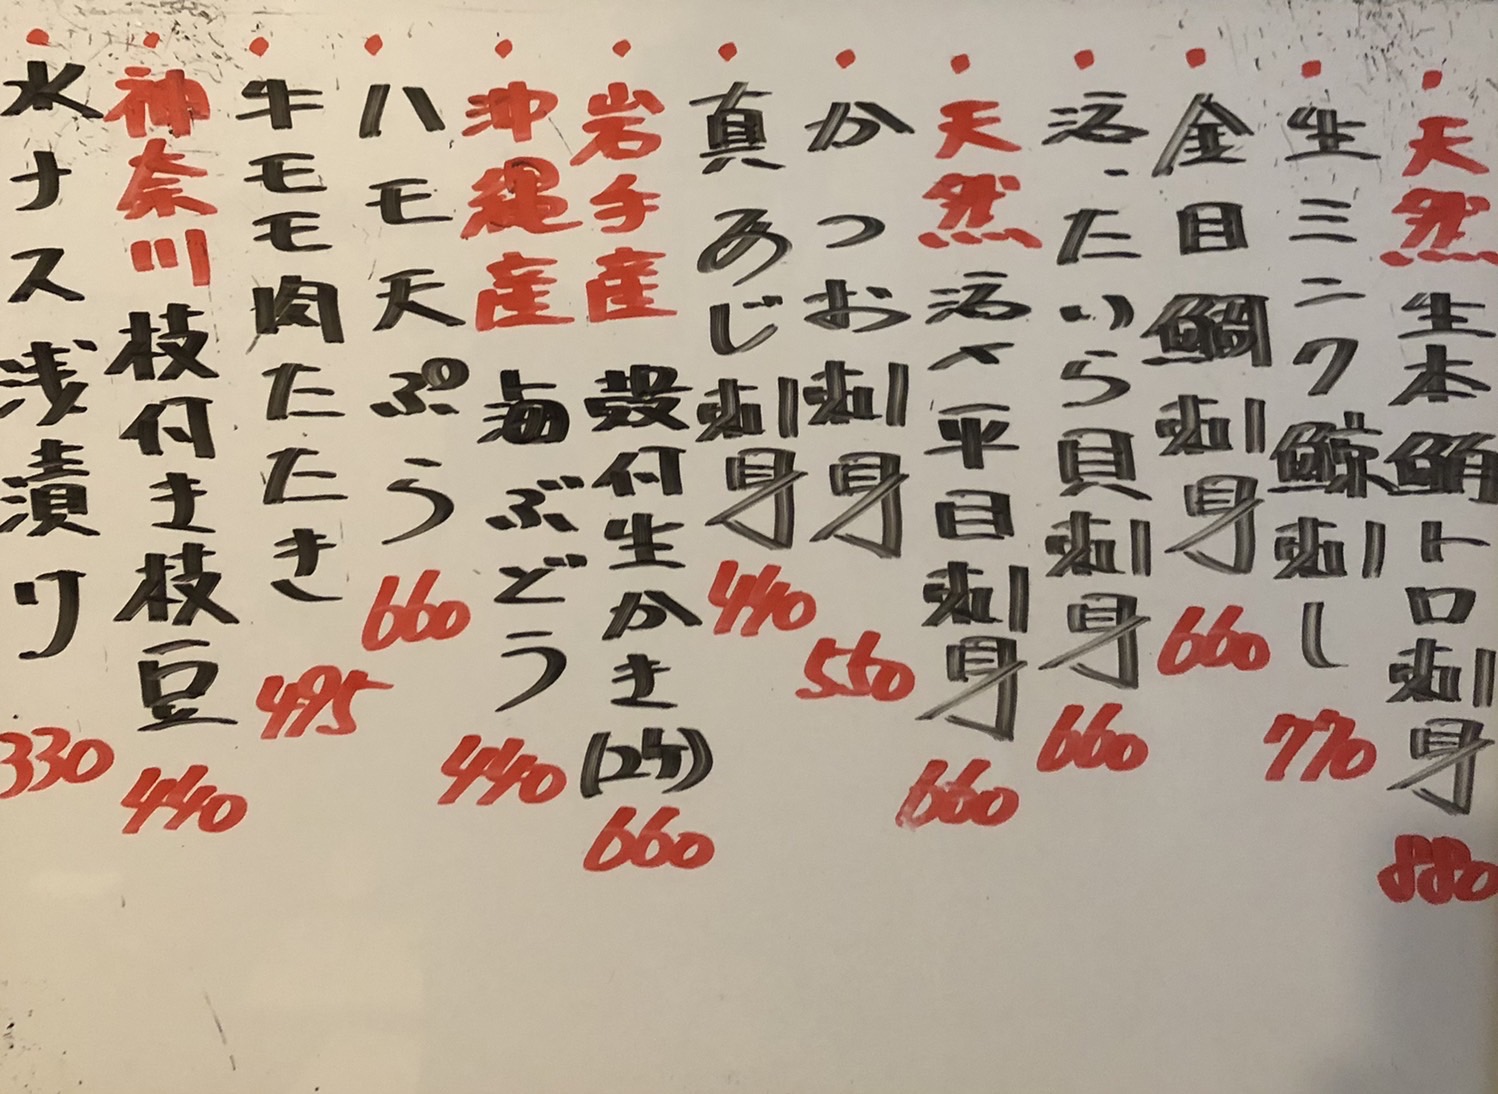 ・天然生本鮪トロ刺身 880
・生ミンク鯨刺し 770
・金目鯛刺身 660
・活、たいら貝刺身 660
・天然活〆平目刺身 660
・かつお刺身 550
・真あじ刺身 440
・岩手産殻付生かき(2ケ) 660
・沖縄産海ぶどう 440
・ハモ天ぷら 660
・牛モモ肉たたき 495
・神奈川枝付き枝豆 440
・水ナス浅漬け 330